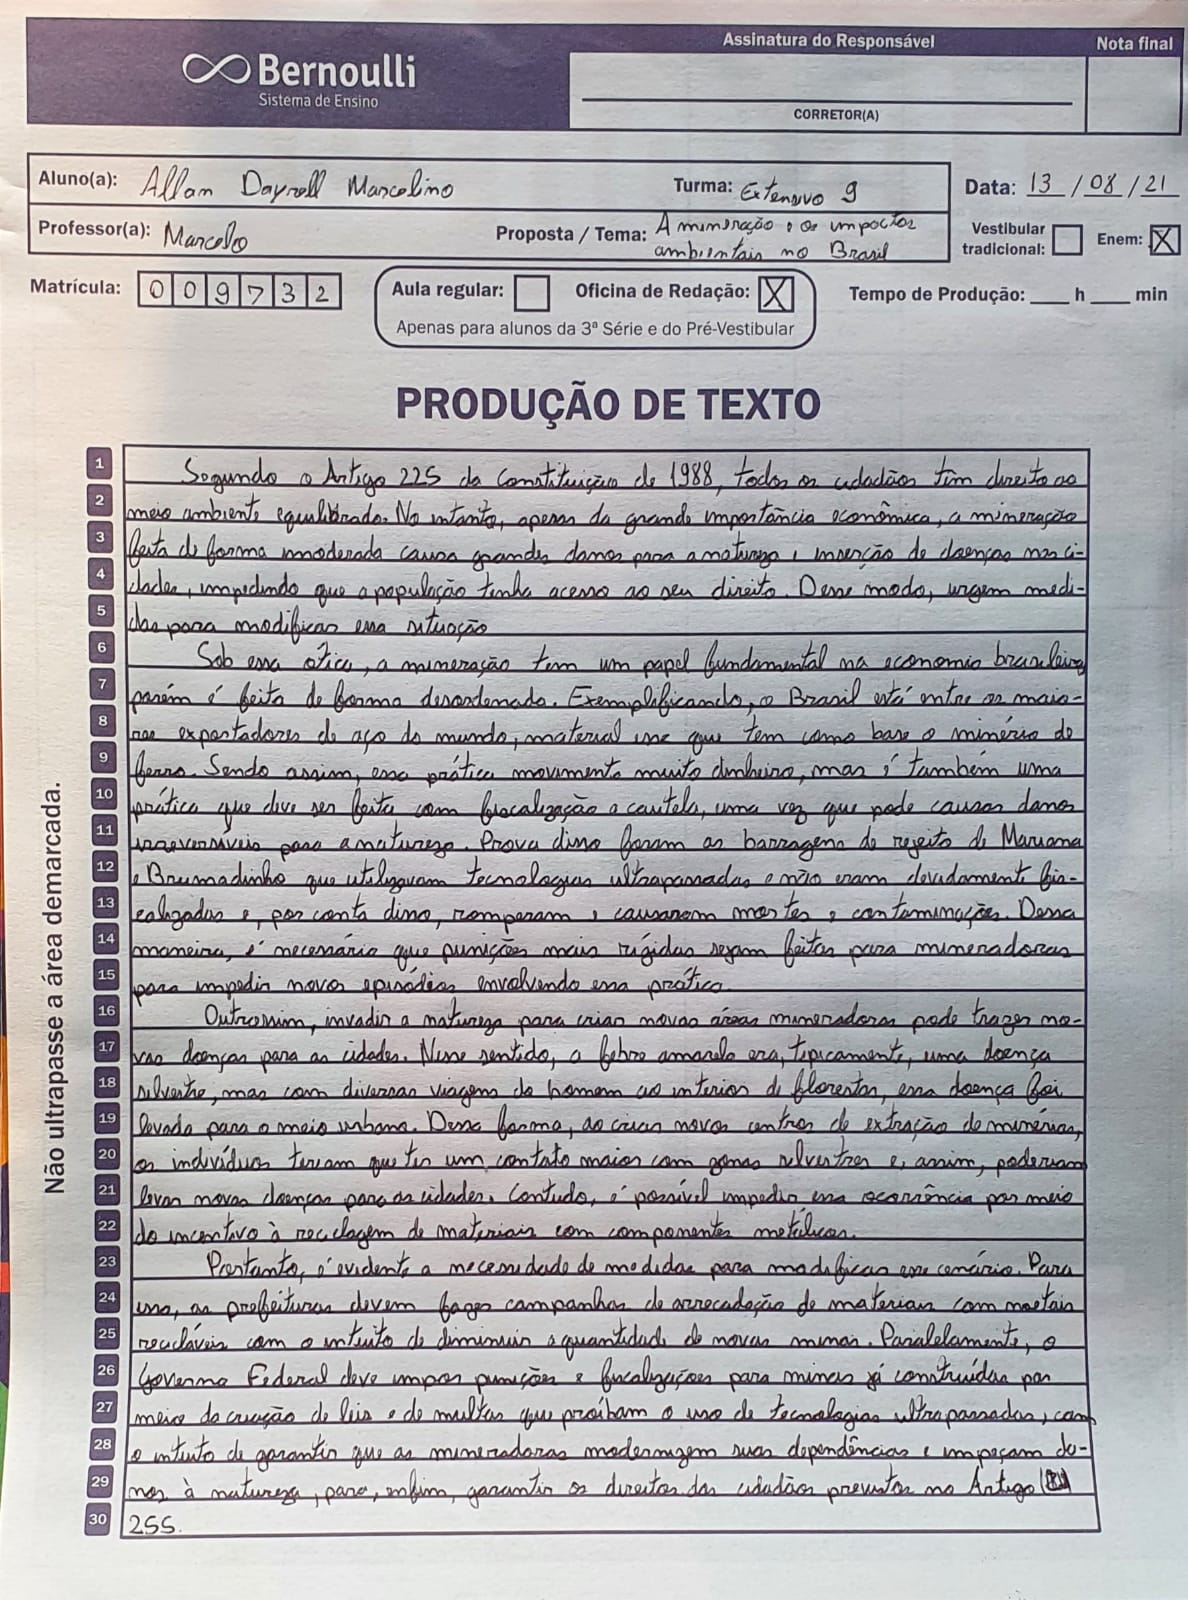 Bernoulli
Sistema de Ensino
Assinatura do Responsável
CORRETOR(A)
Nota final
Aluno(a): Allan Dayrell Marcelino
Turma: Extensivo 9
Data: 13/08/21
Professor(a): Marcelo
Proposta / Tema: A mineração e os impactos
ambientais no Brasil
Vestibular tradicional:
Enem: X
Matrícula: 009732
Aula regular:
Oficina de Redação: X
Apenas para alunos da 3ª Série e do Pré-Vestibular
Tempo de Produção: ___ h ___ min
PRODUÇÃO DE TEXTO
Não ultrapasse a área demarcada.
1 Segundo o Artigo 225 da Constituição de 1988, todos os cidadãos têm direito ao
2 meio ambiente equilibrado. No entanto, apesar da grande importância econômica, a mineração
3 feita de forma imoderada causa grandes danos para a natureza e inserção de doenças nas ci-
4 dades, impedindo que a população tenha acesso ao seu direito. Desse modo, urgem medi-
5 das para modificar essa situação
6 Sob essa ótica, a mineração tem um papel fundamental na economia brasileira
7 porém é feita de forma desordenada. Exemplificando, o Brasil está entre os maio-
8 res exportadores de aço do mundo, material esse que tem como base o minério de
9 ferro. Sendo assim, essa prática movimenta muito dinheiro, mas é também uma
10 prática que deve ser feita com fiscalização e cautela, uma vez que pode causar danos
11 irreversíveis para a natureza. Prova disso foram as barragens de rejeito de Mariana
12 e Brumadinho que utilizavam tecnologias ultrapassadas e não eram devidamente fis-
13 calizadas e, por conta disso, romperam e causarem mortes e contaminações. Dessa
14 maneira, é necessário que punições mais rígidas sejam feitas para mineradoras
15 para impedir novos episódios envolvendo essa prática.
16 Outrossim, invadir a natureza para criar novas áreas mineradoras pode trazer no-
17 vas doenças para as cidades. Nesse sentido, a febre amarela era, tipicamente, uma doença
18 silvestre, mas com diversas viagens do homem ao interior de florestas, essa doença foi
19 levada para o meio urbano. Dessa forma, ao criar novos centros de extração de minérios,
20 os indivíduos teriam que ter um contato maior com zonas silvestres e, assim, poderiam
21 levar novas doenças para as cidades. Contudo, é possível impedir essa ocorrência por meio
22 do incentivo à reciclagem de materiais com componentes metálicos.
23 Portanto, é evidente a necessidade de medidas para modificar esse cenário. Para
24 isso, as prefeituras devem fazer campanhas de arrecadação de materiais com maetais
25 recicláveis com o intuito de diminuir a quantidade de novas minas. Paralelamente, o
26 Governo Federal deve impor punições e fiscalizações para minas já construídas por
27 meio da criação de leis e de multas que proíbam o uso de tecnologias ultrapassadas, com
28 o intuito de garantir que as mineradoras modernizem suas dependências e impeçam da-
29 nos à natureza, para, enfim, garantir os direitos dos cidadãos previstos no Artigo
30 255.